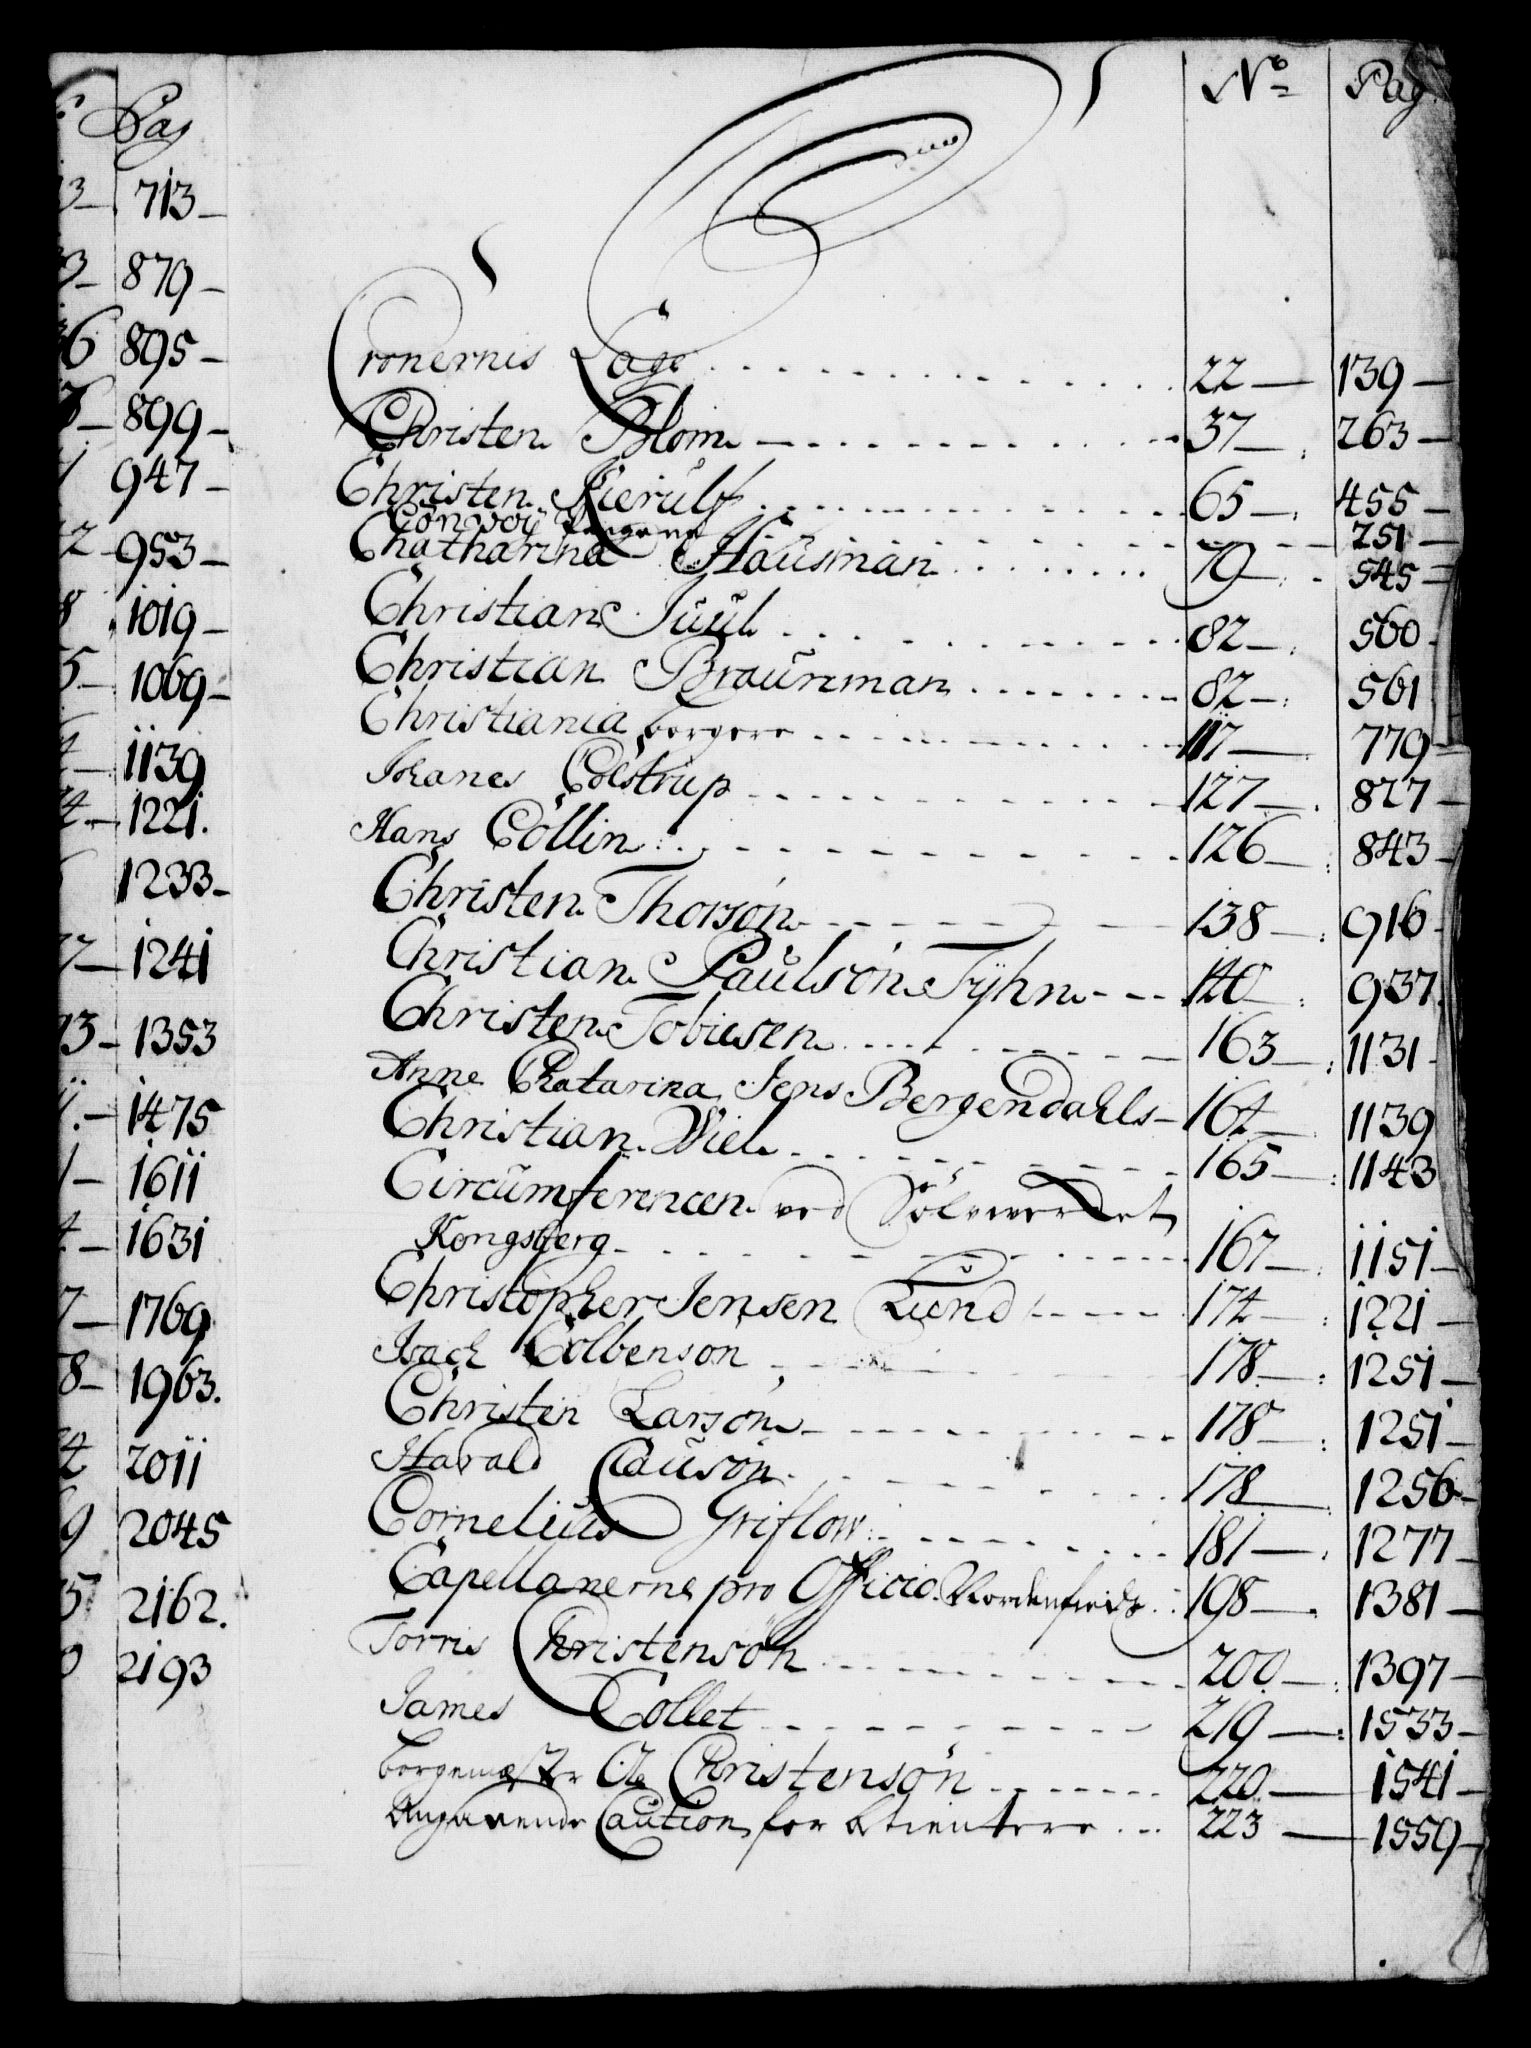 Pag
713
879
895
899
947
953
1019
1069
1139
1221.
1233
1241
1353
1475
1611
1631
1769
1963.
2011
2045
2162.
2193
No Pag.
Cronernis Lage 22 139
Christen Blom 37 263
Christen Kierulf 65 455
Convoy Pengene 251
Chatharina Hausman 79 545
Christian Juul 82 560
Christian Braunman 82 561
Christiania borgere 117 779
Johanes Colstrup 127 827
Hans Collin 126 843
Christen Thorson 138 916
Christian Paulson Tÿhn 140 937
Christen Tobiesen 163 1131
Anne Chatarina Jens Bergendahls 164 1139
Christian Wiel 165 1143
Circumferencen ved Sölvverket
Kongsberg 167 1151
Christopher Jensen Lund 174 1221
Isach Colbenson 178 1251
Christen Larson 178 1251
Harald Clauson 178 1256
Cornelius Griflow 181 1277
Capellanerne pro Officio Nordenfields 198 1381
Torris Christenson 200 1397
James Collet 219 1533
borgemester Ole Christenson 220 1541
Angaaende Caution for 223 1559